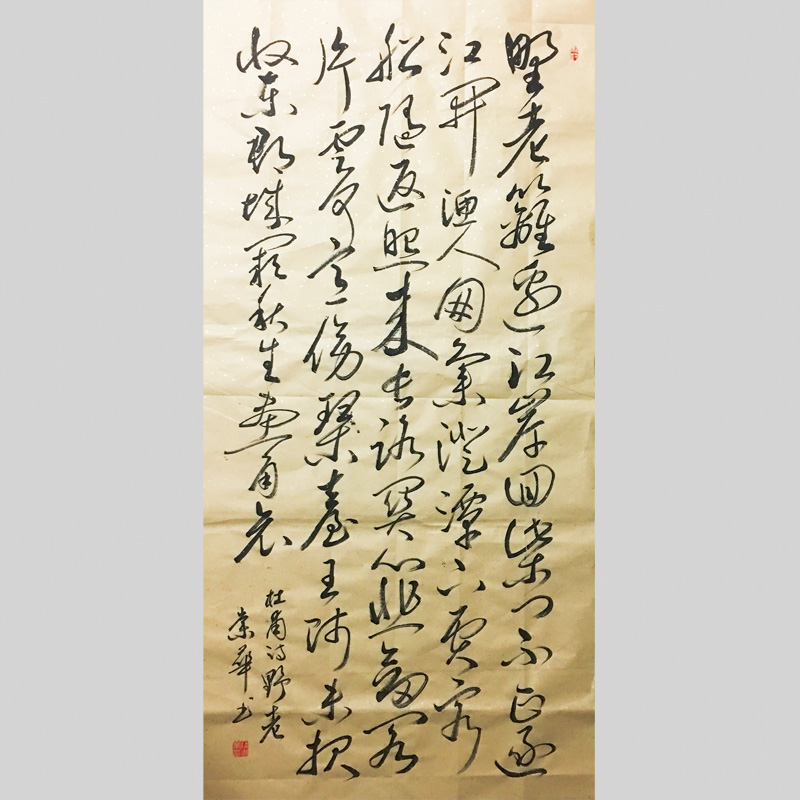 野老籬邊江岸回柴門不正逐
江開漁人網集澄潭下賈客
船隨返照來長路關心悲劍閣
片雲何意傍琴臺王師未報
收東郡城闕秋生畫角哀
杜甫詩野老
華书